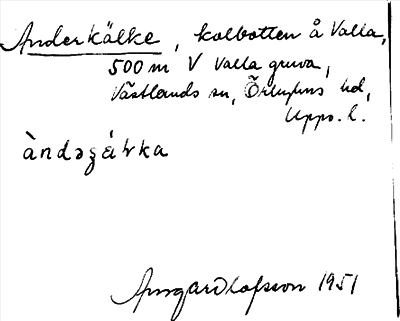 Anderkälke, kolbotten å Valla,
500 m V Valla gruva,
Västlands sn, Örbyhus hd,
Upps. l.
àndəʒáłka
Olofsson 1951